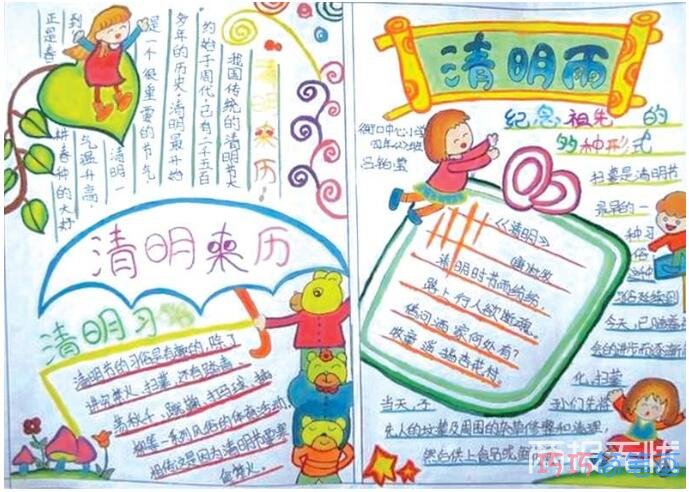 清明来历
我国传统的清明节大
约始于周代,已有二千五百
多年的历史。清明最开始
是一个很重要的节气,
清明一
到
气温升高,
正是春
耕春种的大好
清明来历
清明习俗
清明节的习俗是有趣的,除了
讲究禁火、扫墓,还有踏青、
荡秋千、蹴鞠、打马球、插
柳等一系列风俗的体育活动。
相传这是因为清明节要寒
食禁火。
清明雨
纪念祖先的
多种形式
四年级
扫墓是清明节
最早的一
种习
俗
种
今天,
《清明》
唐 杜牧
清明时节雨纷纷,
路上行人欲断魂。
借问酒家何处有?
牧童遥指杏花村。
化,扫墓
当天,子
孙们先将
先人的坟墓及周围的杂草修整和清理,
然后供上食品